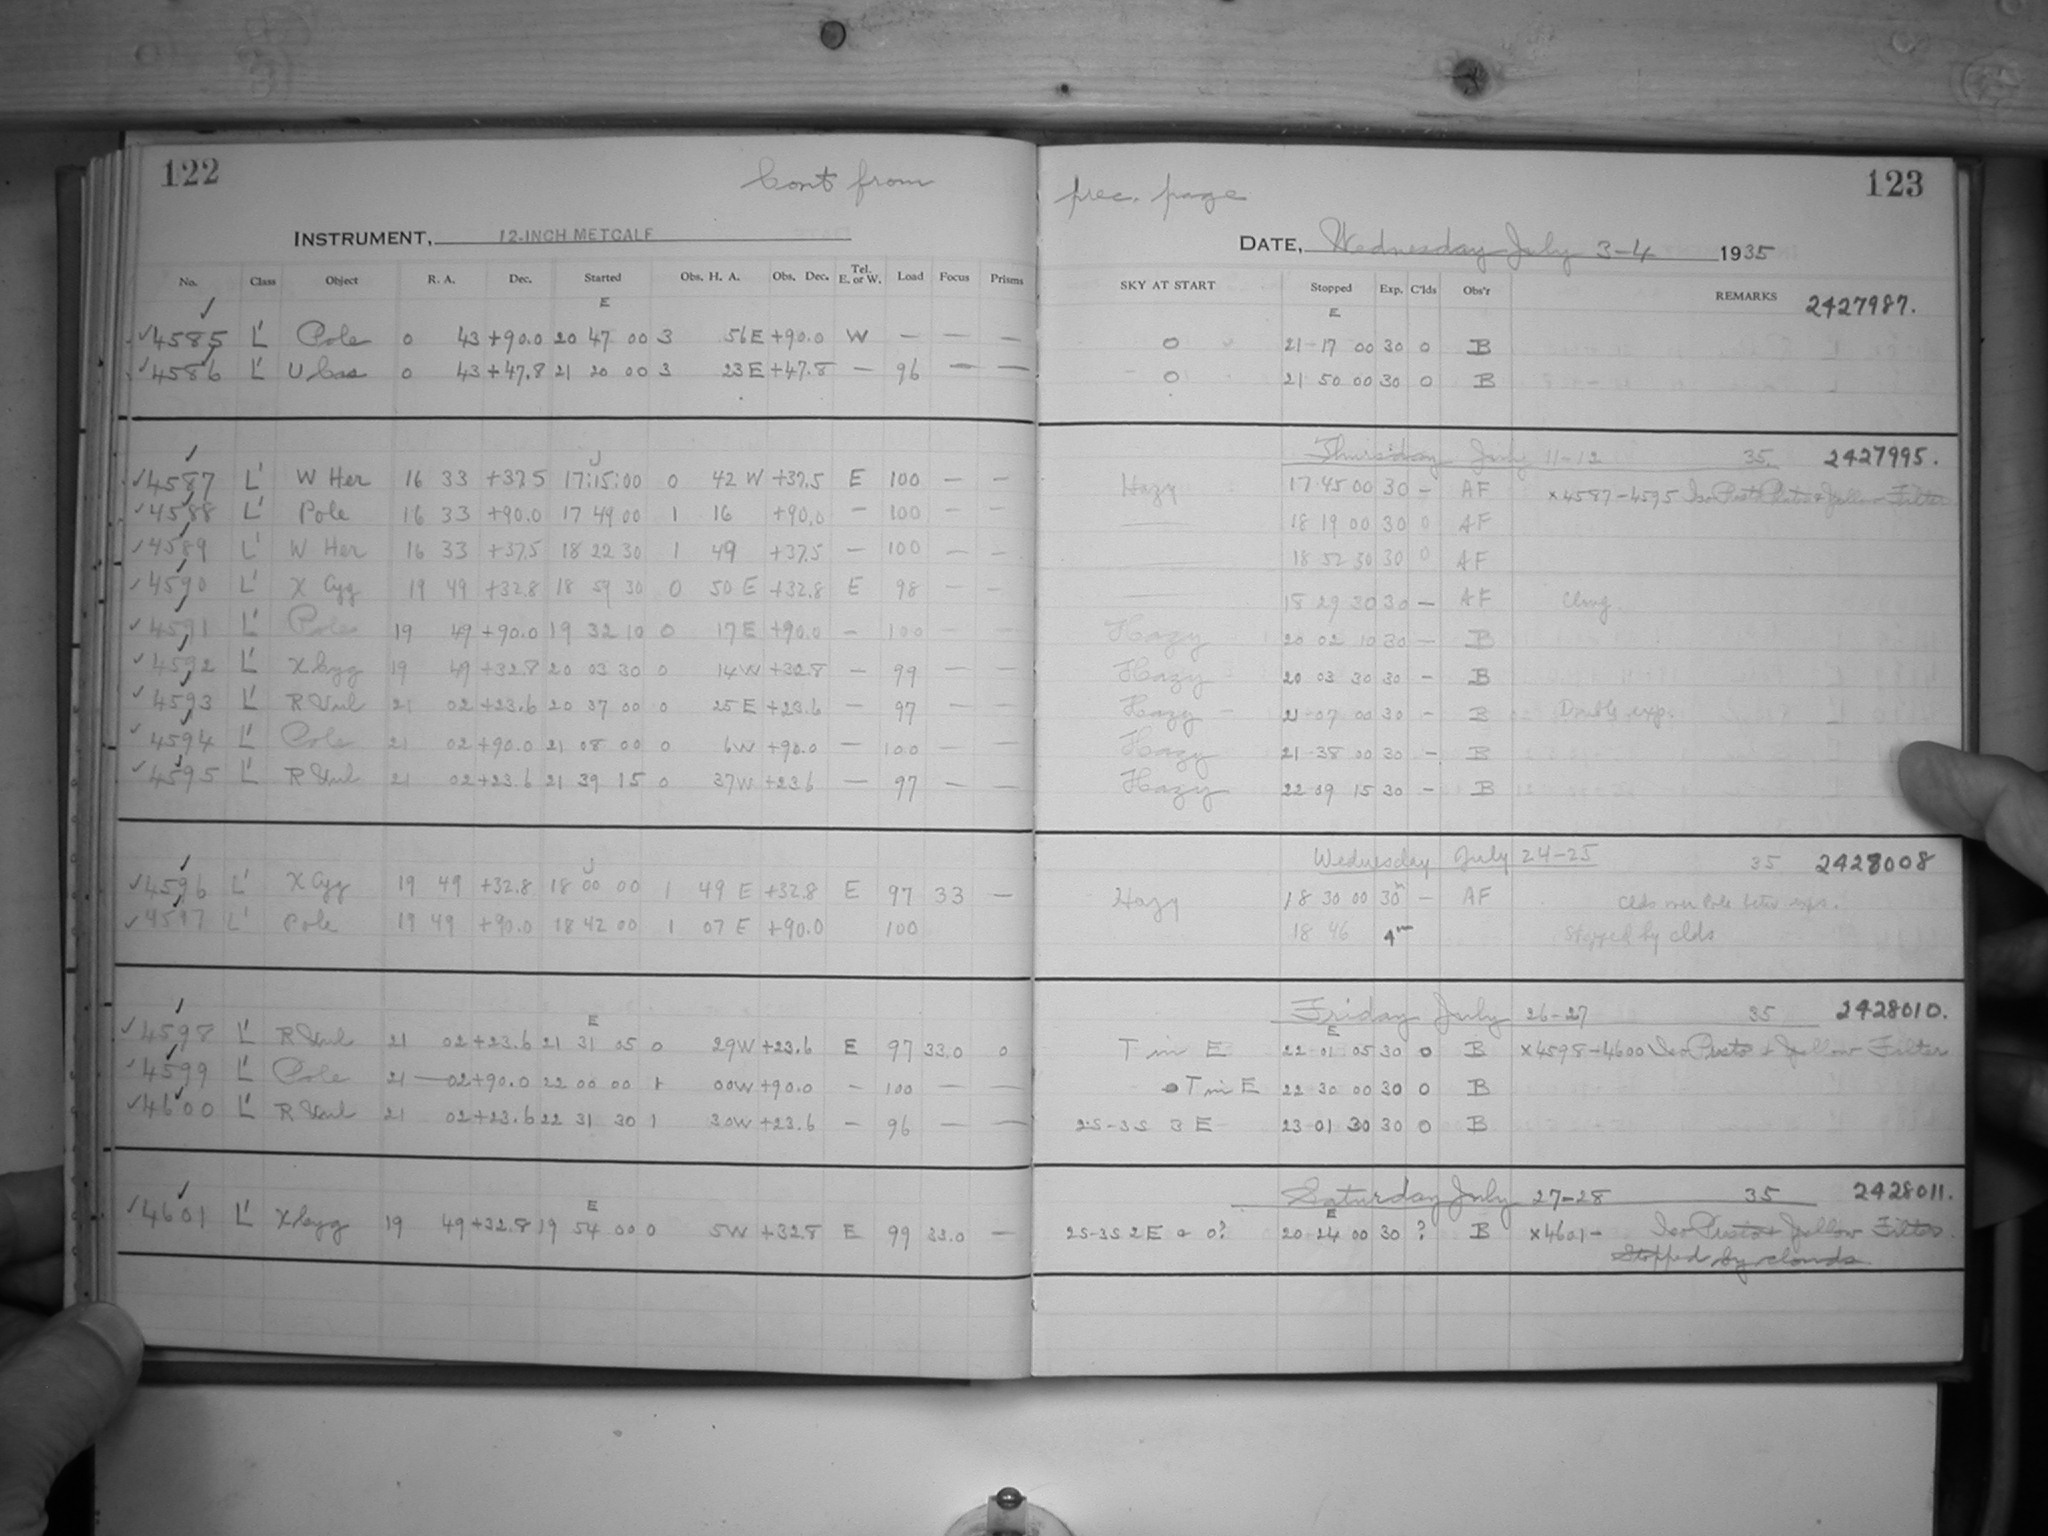 122
Cont from
INSTRUMENT, 12-INCH METCALF
No. Class Object R. A. Dec. Started Obs. H. A. Obs. Dec. Tel. E. or W. Load Focus Prisms
E
4585 L' Pole 0 43 +90.0 20 47 00 3 56 E +90.0 W — — —
4586 L' U Cas 0 43 +47.8 21 20 00 3 23 E +47.8 — 96 — —
J
4587 L' W Her 16 33 +37.5 17:15:00 0 42 W +37.5 E 100 — —
4588 L' Pole 16 33 +90.0 17 49 00 1 16 +90.0 — 100 — —
4589 L' W Her 16 33 +37.5 18 22 30 1 49 +37.5 — 100 — —
4590 L' X Cyg 19 49 +32.8 18 59 30 0 50 E +32.8 E 98 — —
4591 L' Pole 19 49 +90.0 19 32 10 0 17 E +90.0 — 100 — —
4592 L' X Cyg 19 49 +32.8 20 03 30 0 14 W +32.8 — 99 — —
4593 L' R Vul 21 02 +23.6 20 37 00 0 25 E +23.6 — 97 — —
4594 L' Pole 21 02 +90.0 21 08 00 0 6 W +90.0 — 100 — —
4595 L' R Vul 21 02 +23.6 21 39 15 0 37 W +23.6 — 97 — —
J
4596 L' X Cyg 19 49 +32.8 18 00 00 1 49 E +32.8 E 97 33 —
4597 L' Pole 19 49 +90.0 18 42 00 1 07 E +90.0 100
E
4598 L' R Vul 21 02 +23.6 21 31 05 0 29 W +23.6 E 97 33.0 0
4599 L' Pole 21 — 02 +90.0 22 00 00 1 00 W +90.0 — 100 — —
4600 L' R Vul 21 02 +23.6 22 31 30 1 30 W +23.6 — 96 — —
E
4601 L' X Cyg 19 49 +32.8 19 54 00 0 5 W +32.8 E 99 33.0 —
prec. page
123
DATE, Wednesday July 3-4 1935
SKY AT START Stopped Exp. C'lds Obs'r REMARKS 2427987.
E
0 21-17 00 30 0 B
0 21 50 00 30 0 B
Thursday July 11-12 35. 2427995.
Hazy 17 45 00 30 — AF x4587-4595 Iso Press Plate & Yellow Filter
18 19 00 30 0 AF
18 52 30 30 0 AF
18 29 30 30 — AF
Hazy 20 02 10 30 — B
Hazy 20 03 30 30 — B
Hazy — 21-07 00 30 — B Double exp.
Hazy 21-38 00 30 — B
Hazy 22 09 15 30 — B
Wednesday July 24-25 35 2428008
Hazy 18 30 00 30m — AF Clds over Pole betw exps.
18 46 4m Stopped by clds
Friday July 26-27 35 2428010.
E
T in E 22-01 05 30 0 B x4598-4600 Iso Press & Yellow Filter
T in E 22-30 00 30 0 B
2S-3S 3 E 23-01 30 30 0 B
Saturday July 27-28 35 2428011.
E
2S-3S 2E & 0? 20-24 00 30 ? B x4601- Iso Press & Yellow Filter.
Stopped by clouds